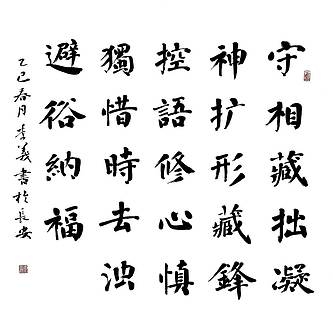 守相藏拙凝
神扩形藏鋒
控語修心慎
獨惜時去浊
避俗納福
乙巳春月李義書於長安